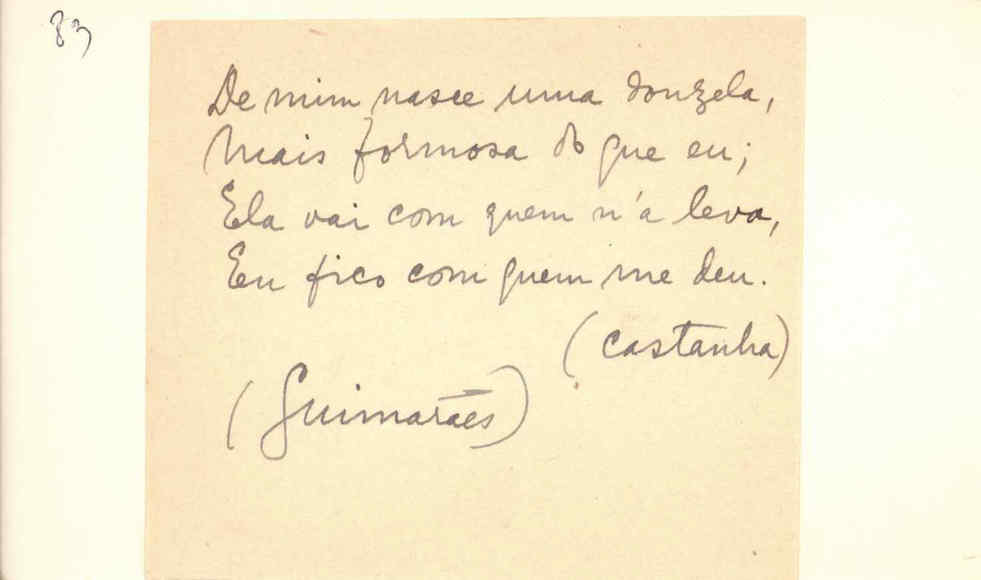 83
De mim nasce uma donzela,
Mais formosa do que eu;
Ela vai com quem n'a leva,
Eu fico com quem me deu.
(castanha)
(Guimarães)